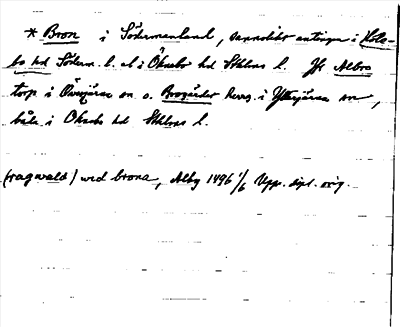 * Bron i Södermanland, sannolikt antingen i Höle-
bo hd Söderm. l. el. i Öknebo hd Sthlms l. Jfr Albro
torp i Överjärna sn o. Brogärdet herrg. i Ytterjärna sn,
båda i Öknebo hd Sthlms l.
(ragwald) wid brona, Alby 1496 1/6 Upp. dipl. orig.